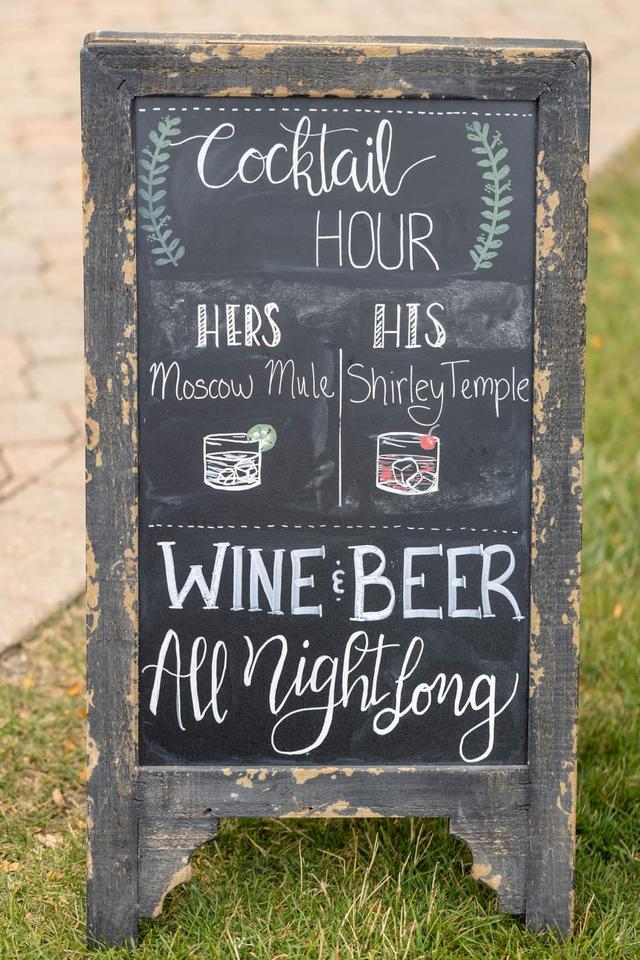 Cocktail
HOUR
HERS HIS
Moscow Mule Shirley Temple
WINE & BEER
All Night Long